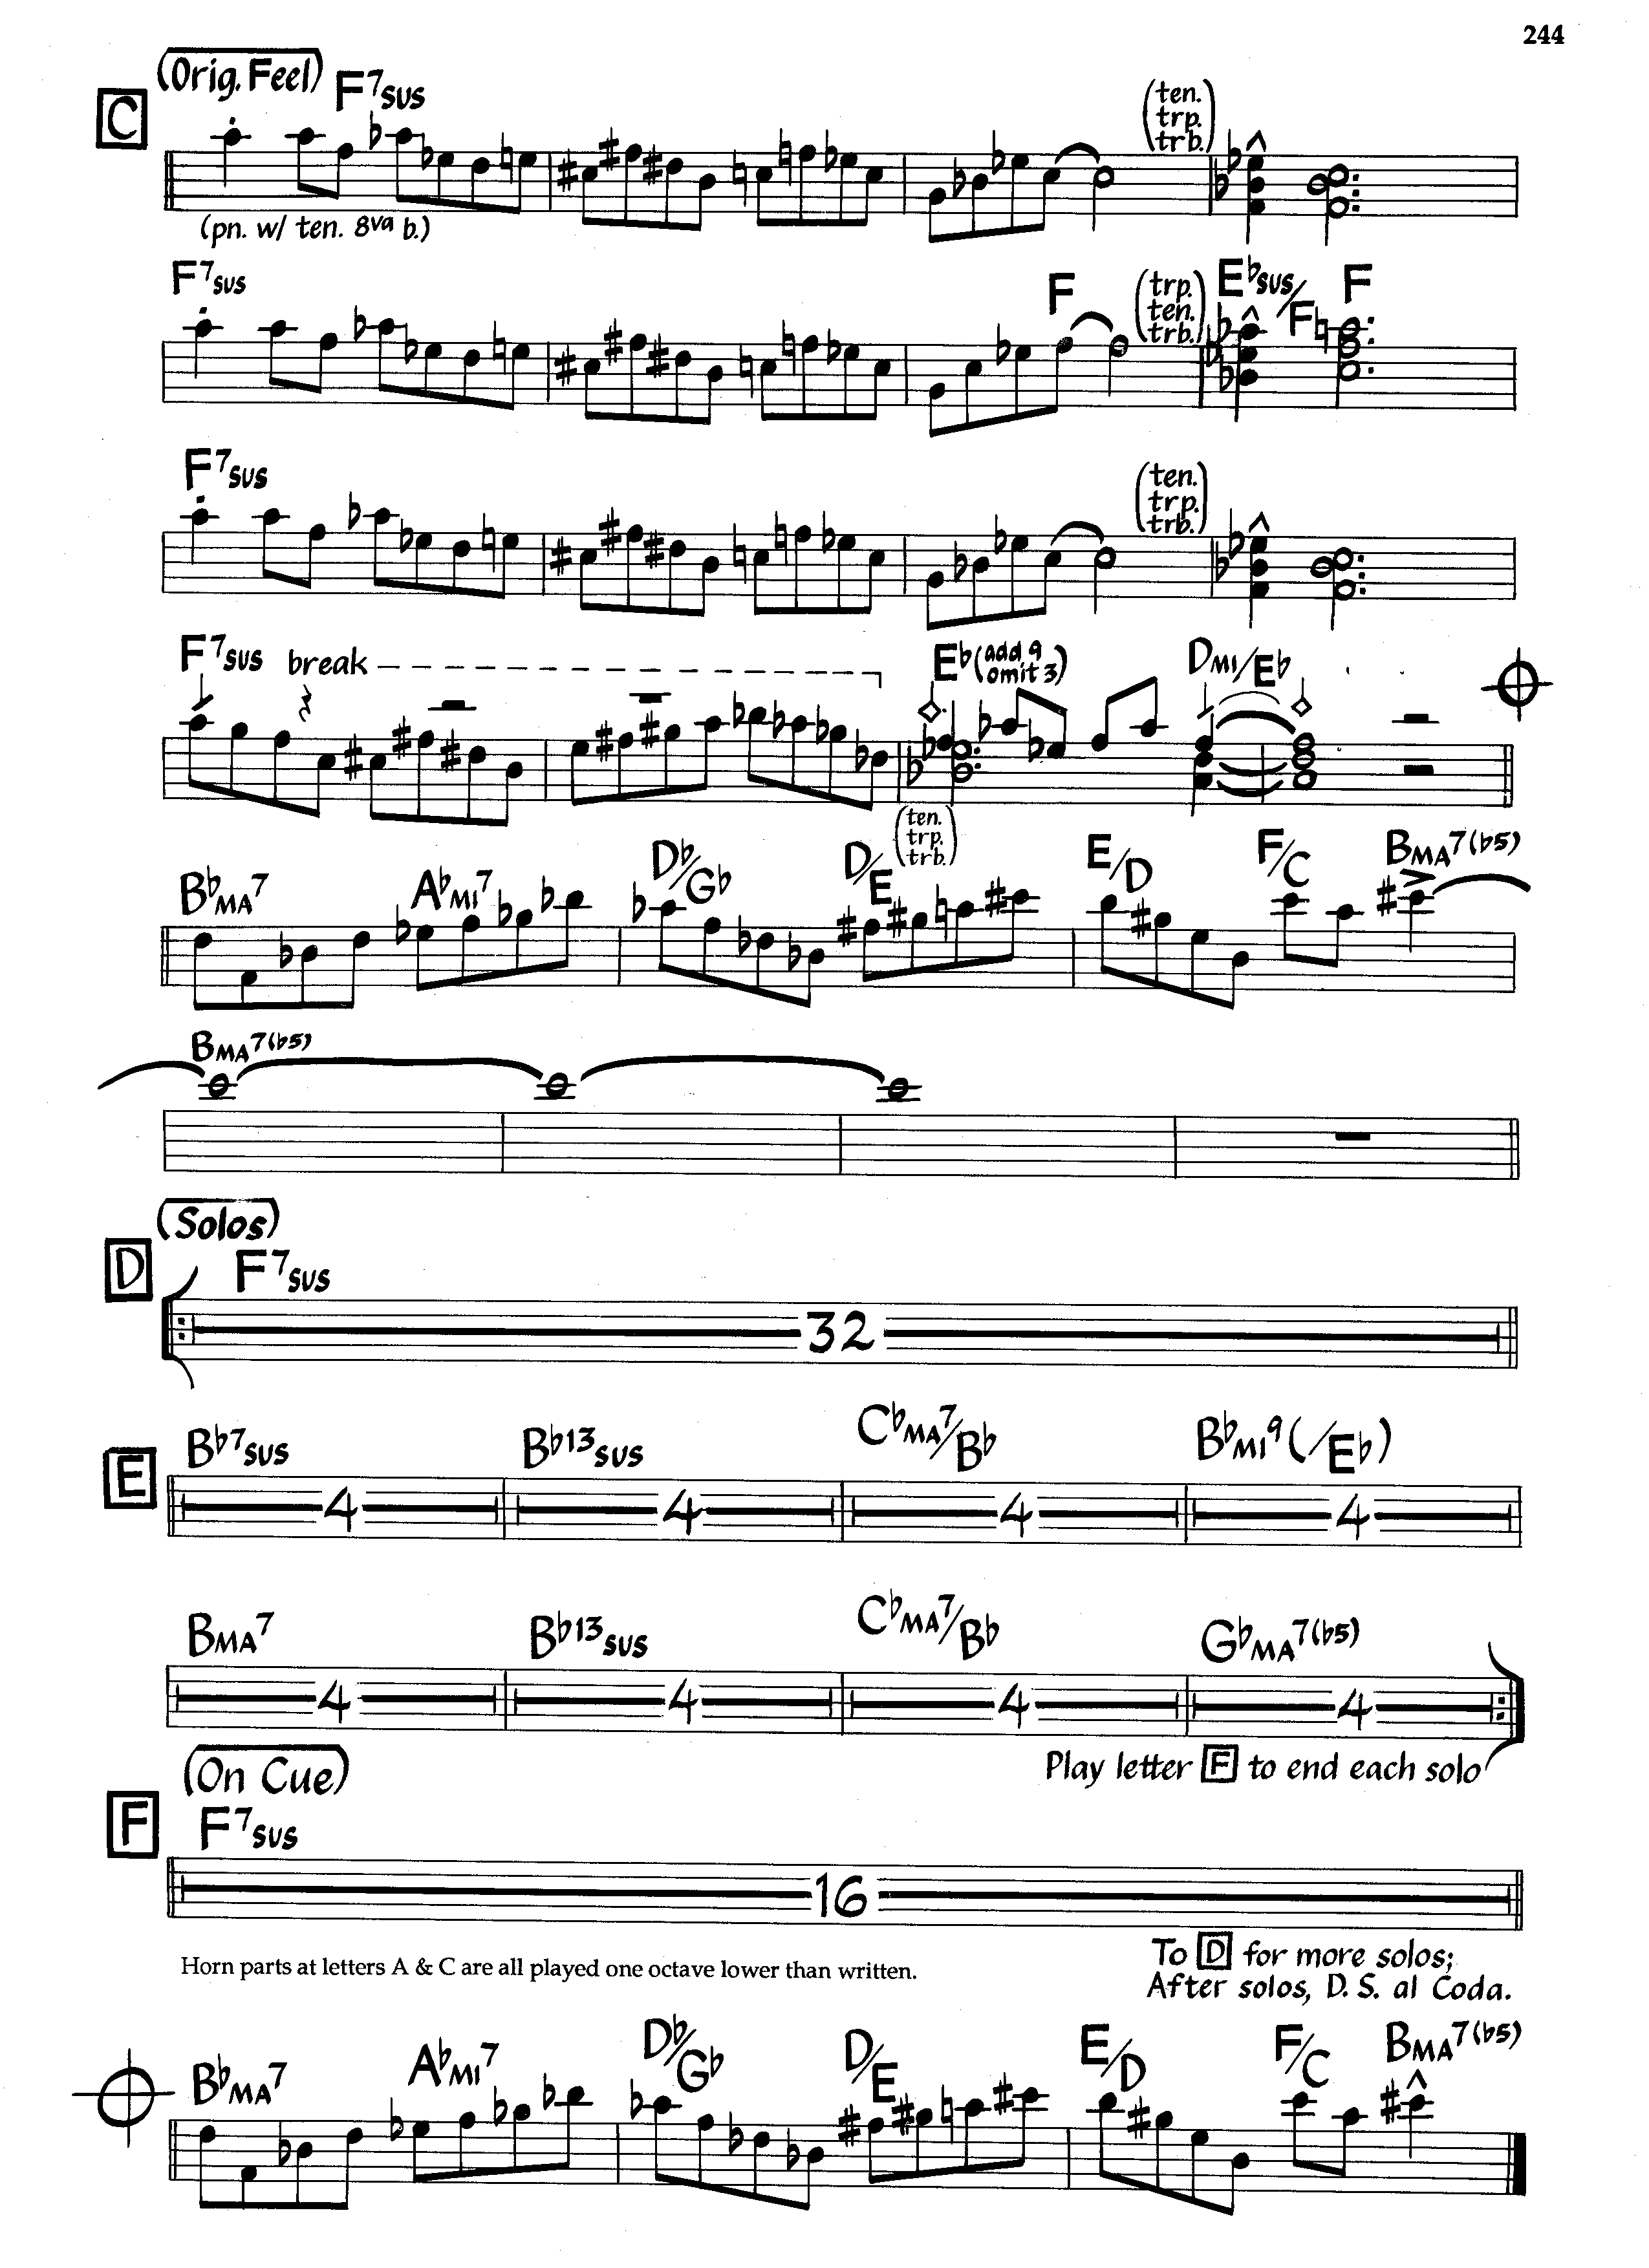 244
(Orig. Feel)
C F7sus (ten.
trp.
trb.)
(pn. w/ ten. 8va b.)
F7sus F (trp.
ten.
trb.) E♭sus/F F
F7sus (ten.
trp.
trb.)
F7sus break E♭(add 9
omit 3) DMI/E♭
(ten.
trp.
trb.)
B♭MA7 A♭MI7 D♭/G♭ D/E E/D F/C BMA7(♭5)
BMA7(♭5)
(Solos)
D F7sus
32
E B♭7sus B♭13sus C♭MA7/B♭ B♭MI9(/E♭)
4 4 4 4
BMA7 B♭13sus C♭MA7/B♭ G♭MA7(♭5)
4 4 4 4
(On Cue) Play letter F to end each solo
F F7sus
16
Horn parts at letters A & C are all played one octave lower than written.
To D for more solos;
After solos, D.S. al Coda.
B♭MA7 A♭MI7 D♭/G♭ D/E E/D F/C BMA7(♭5)